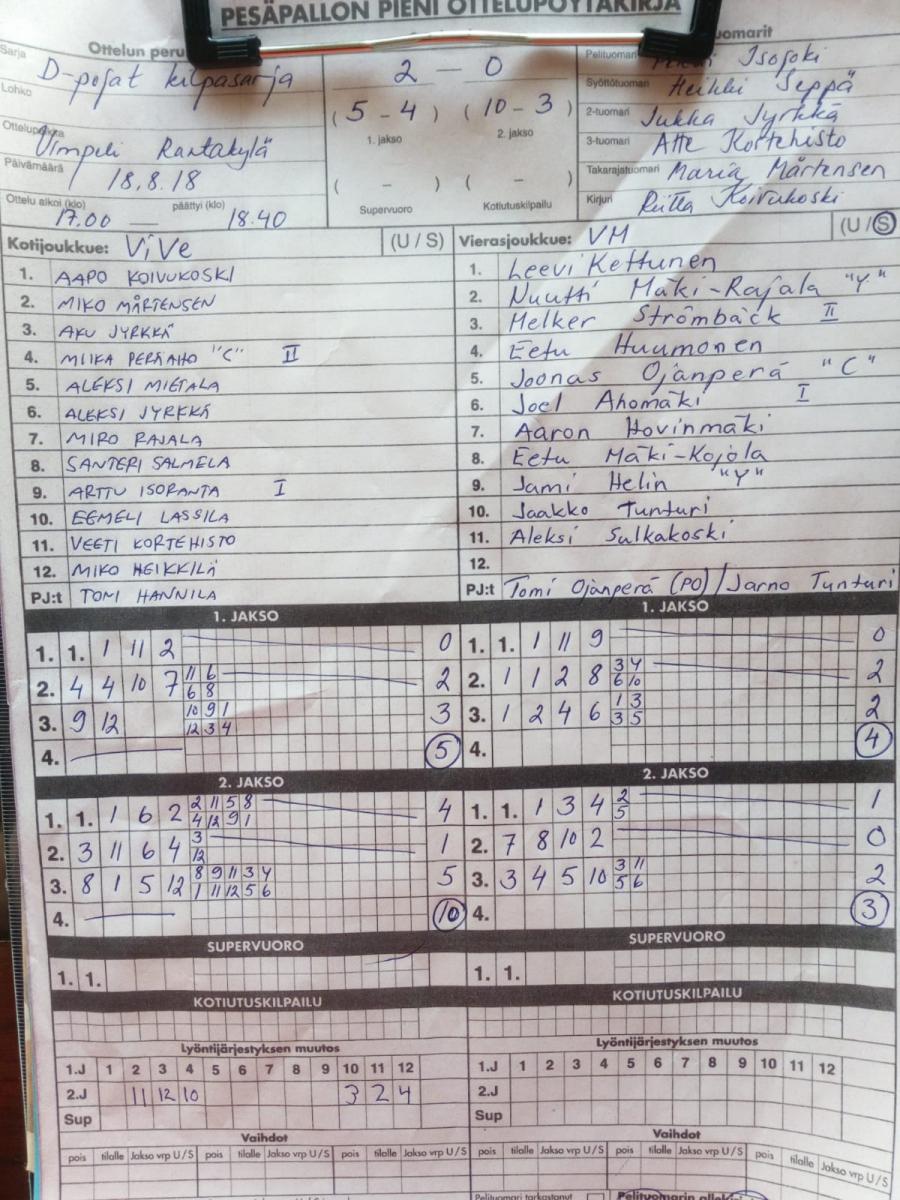 PESÄPALLON PIENI OTTELUPÖYTÄKIRJA
Ottelun peru
Sarja D-pojat kilpasarja
Lohko
Ottelupaikka Vimpeli Rantakylä
Päivämäärä 18.8.18
Ottelu alkoi (klo) 17.00 — päättyi (klo) 18.40
2 – 0
(5 – 4) (10 – 3)
1. jakso 2. jakso
( – ) ( – )
Supervuoro Kotiutuskilpailu
uomarit
Pelituomari Isojoki
Syöttötuomari Heikki Seppä
2-tuomari Jukka Jyrkkä
3-tuomari Atte Kortehisto
Takarajatuomari Maria Mårtensen
Kirjuri Riitta Koivukoski
Kotijoukkue: ViVe (U / S)
1. AAPO KOIVUKOSKI
2. MIKO MÅRTENSEN
3. AKU JYRKKÄ
4. MIIKA PERÄAHO "C" II
5. ALEKSI MIETALA
6. ALEKSI JYRKKÄ
7. MIRO RAJALA
8. SANTERI SALMELA
9. ARTTU ISORANTA I
10. EEMELI LASSILA
11. VEETI KORTEHISTO
12. MIKO HEIKKILÄ
PJ:t TOMI HANNILA
Vierasjoukkue: VM (U / S)
1. Leevi Kettunen
2. Nuutti Mäki-Rajala "Y"
3. Melker Strömbäck II
4. Eetu Huumonen
5. Joonas Ojanperä "C"
6. Joel Ahomäki I
7. Aaron Hovinmäki
8. Eetu Mäki-Kojola
9. Jami Helin "Y"
10. Jaakko Tunturi
11. Aleksi Sulkakoski
12.
PJ:t Tomi Ojanperä (PO) / Jarno Tunturi
1. JAKSO
1. 1. 1 11 2 0
2. 4 4 10 7 11 6 2
6 8
3. 9 12 10 9 1 3
12 3 4
4. 5
1. JAKSO
1. 1. 1 11 9 0
2. 1 1 2 8 3 4 2
6 10
3. 1 2 4 6 1 3 2
3 5
4. 4
2. JAKSO
1. 1. 1 6 2 2 11 5 8 4
4 12 9 1
2. 3 11 6 4 3 1
12
3. 8 1 5 12 8 9 11 3 4 5
1 11 12 5 6
4. 10
2. JAKSO
1. 1. 1 3 4 2 1
5
2. 7 8 10 2 0
3. 3 4 5 10 3 11 2
5 6
4. 3
SUPERVUORO
1. 1.
SUPERVUORO
1. 1.
KOTIUTUSKILPAILU
KOTIUTUSKILPAILU
Lyöntijärjestyksen muutos
1.J 1 2 3 4 5 6 7 8 9 10 11 12
2.J 11 12 10 3 2 4
Sup
Lyöntijärjestyksen muutos
1.J 1 2 3 4 5 6 7 8 9 10 11 12
2.J
Sup
Vaihdot
pois tilalle Jakso vrp U/S pois tilalle Jakso vrp U/S pois tilalle Jakso vrp U/S
Vaihdot
pois tilalle Jakso vrp U/S pois tilalle Jakso vrp U/S pois tilalle Jakso vrp U/S
Pelituomari tarkastanut Pelituomarin